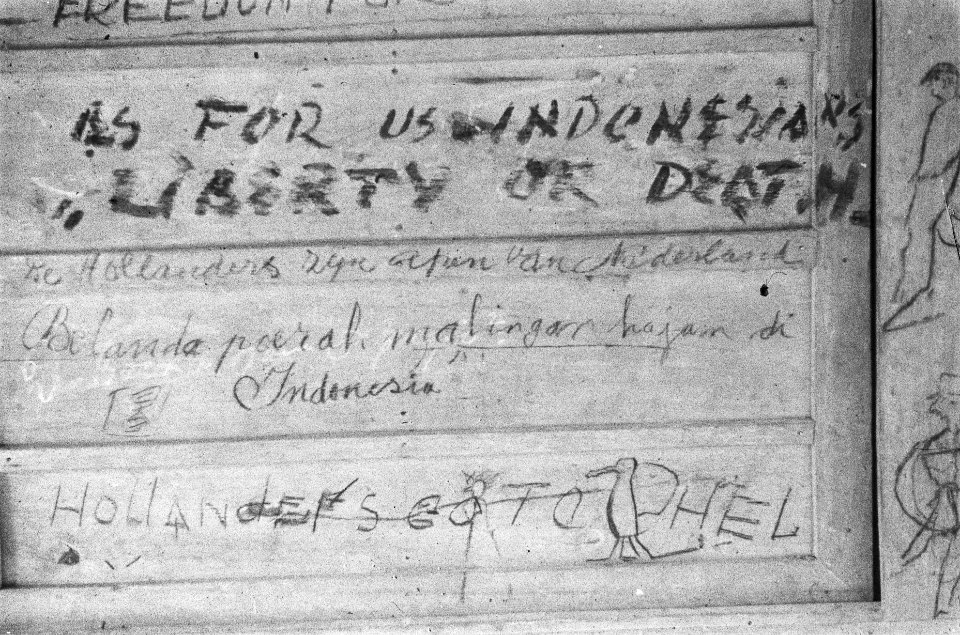 FREEDOM FOR
AS FOR US INDONESIANS
"LIBERTY OR DEATH
De Hollanders zijn apen van Nederland
Belanda poerah malingan hajam di
Indonesia
HOLLANDERS GO TO HEL